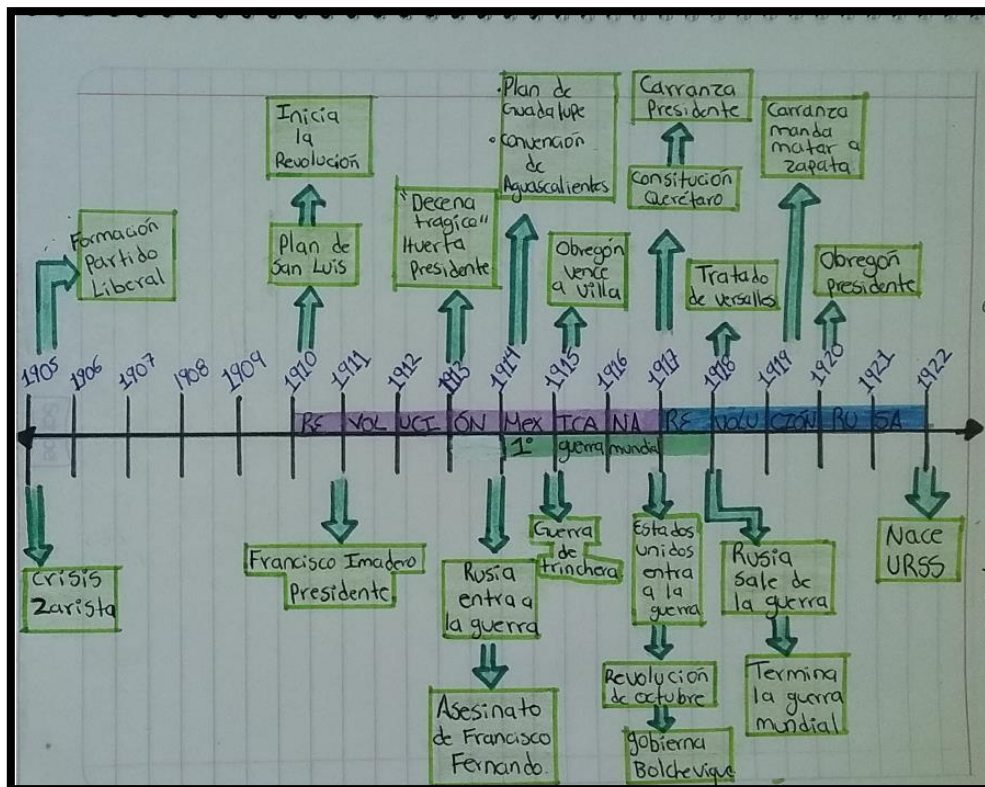 Formación
Partido
Liberal
Inicia
la
Revolución
Plan de
San Luis
"Decena
tragica"
Huerta
Presidente
• Plan de
Guadalupe
• Convención
de
Aguascalientes
Obregón
vence
a Villa
Carranza
Presidente
Consitución
Querétaro
Tratado
de versalles
Carranza
manda
matar a
Zapata.
Obregón
presidente
1905 1906 1907 1908 1909 1910 1911 1912 1913 1914 1915 1916 1917 1918 1919 1920 1921 1922
RE VOL UCI ÓN Mex ICA NA RE VOLU CIÓN RU SA
1° guerra mundial
Crisis
Zarista
Francisco Imadero
Presidente
Rusia
entra a
la guerra
Asesinato
de Francisco
Fernando.
Guerra
de
trinchera
Estados
Unidos
entra
a la
guerra
Revolución
de octubre
gobierna
Bolchevique
Rusia
sale de
la guerra
Termina
la guerra
mundial
Nace
URSS